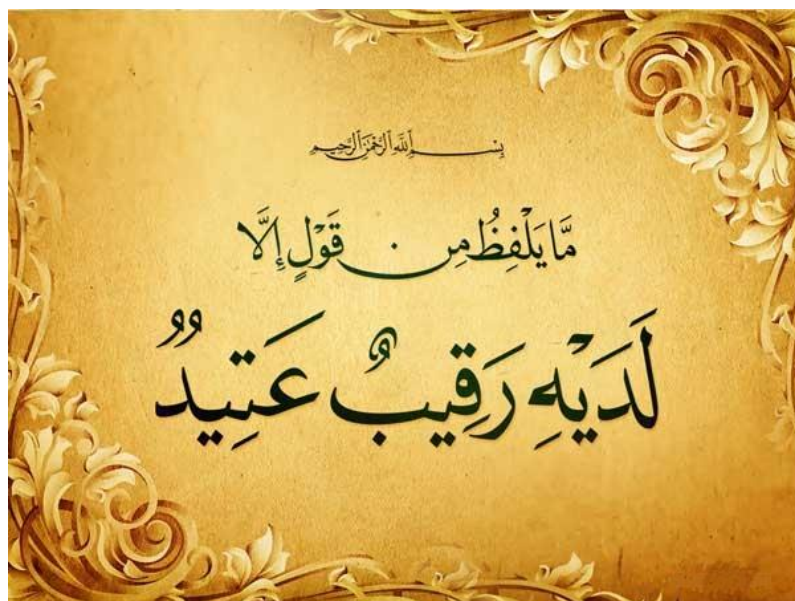 بِسْمِ ٱللَّهِ ٱلرَّحْمَٰنِ ٱلرَّحِيمِ
مَّا يَلْفِظُ مِن قَوْلٍ إِلَّا
لَدَيْهِ رَقِيبٌ عَتِيدٌ